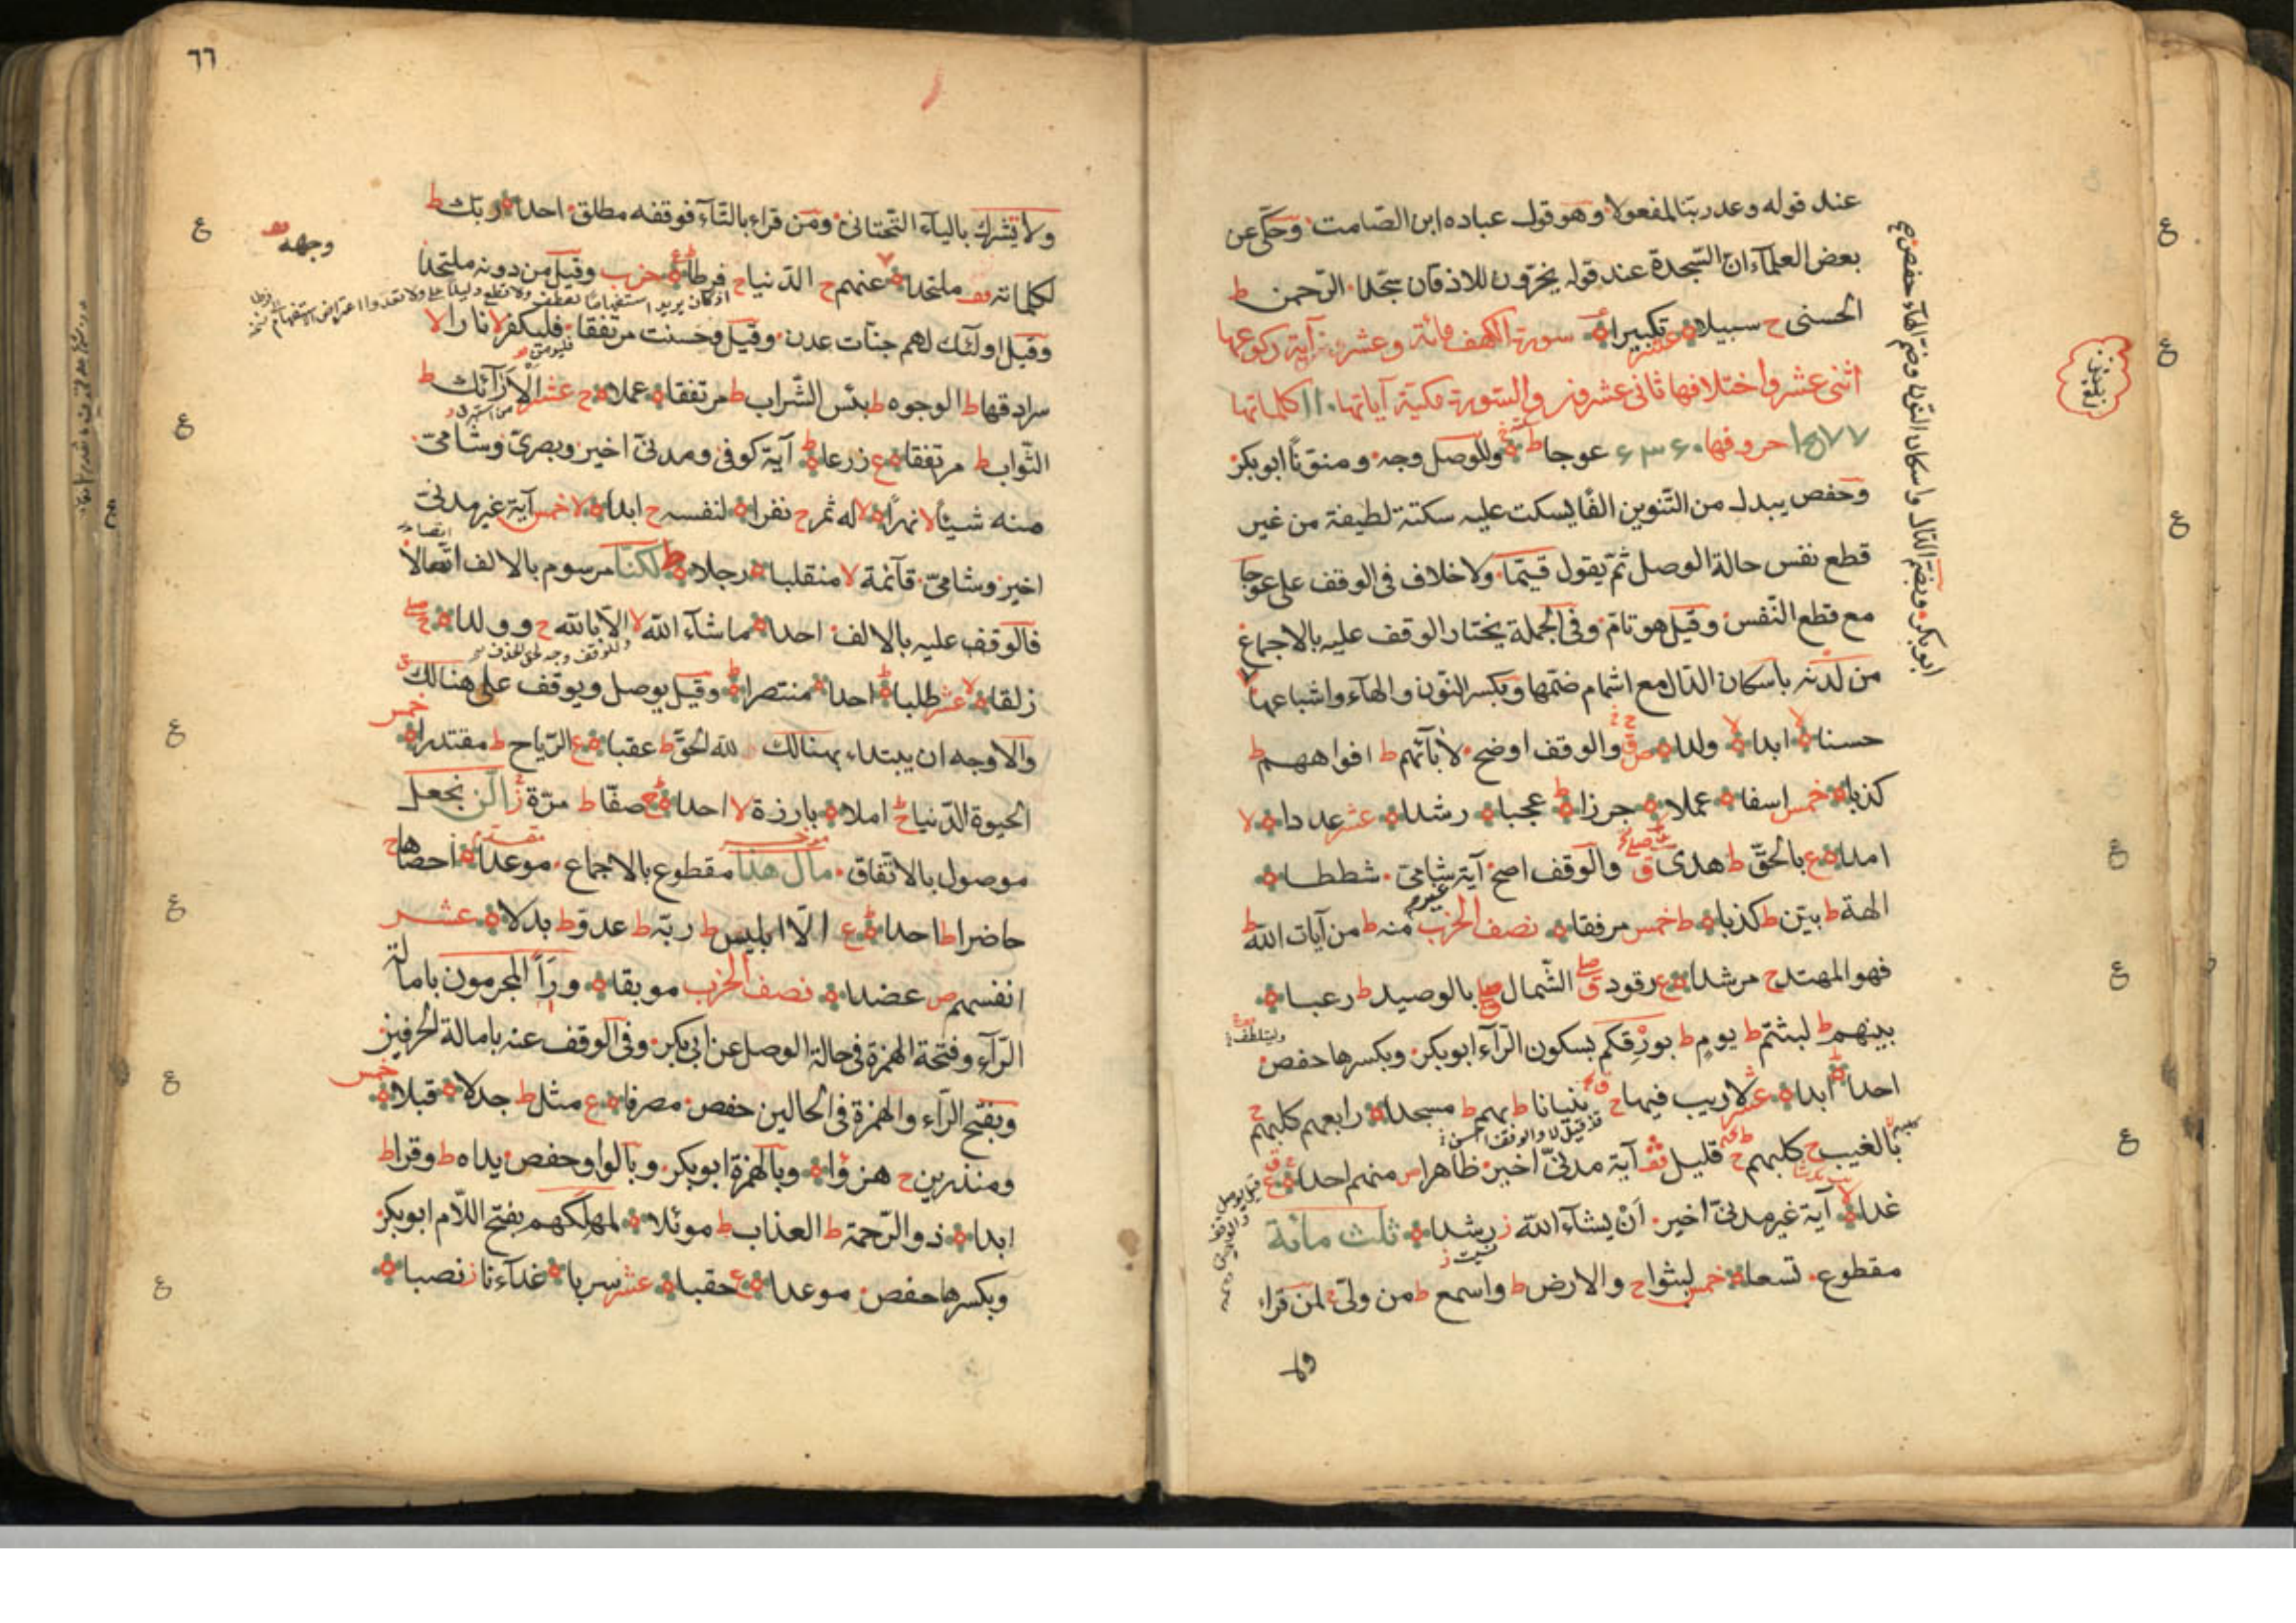 عند قوله وعد ربنا لمفعولا وهو قول عباده ابن الصّامت وحكى عن
بعض العلمآء ان السّجدة عند قوله يخرّون للاذقان سجّدا الرّحمن ط
الحسنى ح سبيلا تكبيرا عشر سورة الكهف مائة وعشر آية ركوعها
اثنى عشر واختلافها ثانى عشر والسّورة مكية آياتها ١١٠ كلماتها
١٥٧٧ حروفها ٦٣٦٠ عوجا ط وللوصل وجه ومنوّناً ابوبكر
وحفص يبدل من التّنوين الفًا يسكت عليه سكتة لطيفة من غير
قطع نفس حالة الوصل ثمّ يقول قيّما ولا خلاف فى الوقف على عوجا
مع قطع النّفس وقيل هو تامّ وفى الجملة يختار الوقف عليه بالاجماع
من لدنه باسكان الدّال مع اشمام ضمّها وبكسر النّون والهآء واشباعها
ابوبكر وبضمّ الدّال واسكان النّون وضمّ الهآء حفص
حسنا لا ابدا لا ولدا والوقف اوضح لآبآئهم ط افواههم ط
كذبا خمس اسفا عملا جرزا ط عجبا رشدا عشر عددا لا
امدا ع بالحقّ ط هدى ق والوقف اصح آية غير شامىّ شططا
الهة ط بيّن ط كذبا ط خمس مرفقا نصف الحزب منه ط من آيات الله ط
فهو المهتد ح مرشدا ع رقود ق صلے الشّمال ق صلے بالوصيد ط رعبا
بينهم ط لبثتم ط يوم ط بورقكم بسكون الرّآء ابوبكر وبكسرها حفص
وليتلطف
احدا ابدا عشر لا ريب فيها ح بنيانا ط بهم ط مسجدا رابعهم كلبهم ح
بالغيب ح كلبهم ح قليل قف آية مدنىّ اخير ظاهرا ص منهم احدا ع
غدا لا آية غير مدنىّ اخير أن يشآء الله ز رشدا ثلث مائة
نسيت ز
مقطوع تسعا خمس لبثوا ح والارض ط واسمع ط من ولىّ لمن قراء
٦٦
ولا يشرك باليآء التّحتانى ومن قراء بالتّآء فوقفه مطلق احدا ربّك ط
لكلماته قف ملتحدا عنهم ح الدّنيا ح فرطا ع حزب وقيل من دونه ملتحدا
وجهه
وقيل اولئك لهم جنّات عدن وقيل وحسنت مرتفقا فليكفر لا نارا لا
فليؤمن
سرادقها ط الوجوه ط بئس الشّراب ط مرتفقا عملا ح عشر الارآئك ط
الثّواب ط مرتفقا ع زرعا ط آية كوفى ومدنىّ اخير وبصرىّ وشامىّ
منه شيئا لا نهرًا لا له ثمر ح نفرا لنفسه ح ابدا لا خمس آية غير مدنىّ
اخير وشامىّ قآئمة لا منقلبا رجلا ط لكنّا مرسوم بالالف اتّصالا
فالوقف عليه بالالف احدا ما شآء الله لا الّا بالله ح وولدا ج
زلقا لا عشر طلبا احدا منتصرا ط وقيل يوصل ويوقف على هنالك
خمس
والاوجه ان يبتداء بهنالك لله الحقّ ط عقبا ع الرّياح ط مقتدرا
الحيوة الدّنيا ح املا بارزة لا احدا ج صفّا ط مرّة ز الّن نجعل
موصول بالاتّفاق مال هذا مقطوع بالاجماع موعدا احصاها ح
حاضرا ط احدا ع الّا ابليس ط ربّه ط عدوّ ط بدلا عشر
انفسهم ص عضدا نصف الحزب موبقا ورأ المجرمون بامالة
الرّآء وفتحة الهمزة فى حالة الوصل عن ابى بكر وفى الوقف عنه بامالة الحرفين
وبفتح الرّآء والهمزة فى الحالين حفص مصرفا ع مثل ط جدلا قبلا
خمس
ومنذرين ح هزوا وبالهمزة ابوبكر وبالواو حفص يداه ط وقرا ط
ابدا ذو الرّحمة ط العذاب ط موئلا لمهلكهم بفتح اللّام ابوبكر
وبكسرها حفص موعدا ع حقبا عشر سربا غدآءنا ز نصبا